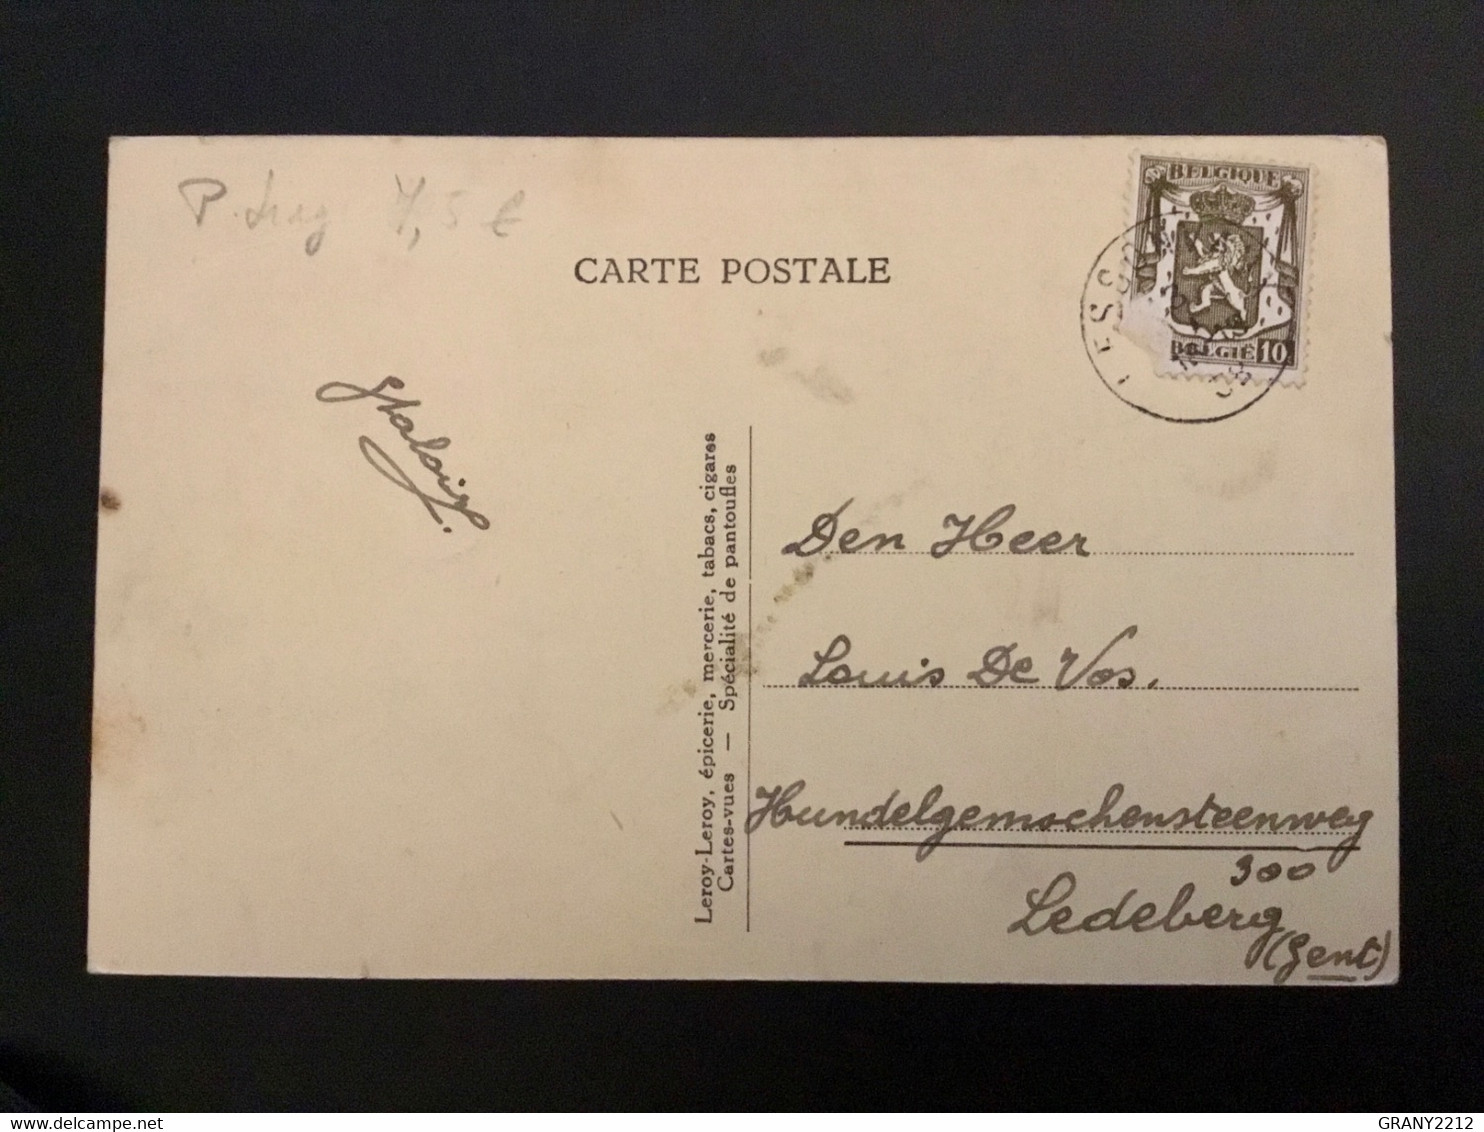 7,5 €
CARTE POSTALE
BELGIQUE
BELGIË 10
Leroy-Leroy, épicerie, mercerie, tabacs, cigares
Cartes-vues — Spécialité de pantoufles
Den Heer
Louis De Vos.
Hundelgemschensteenweg
300
Ledeberg
(Gent)
delcampe.net
GRANY2212